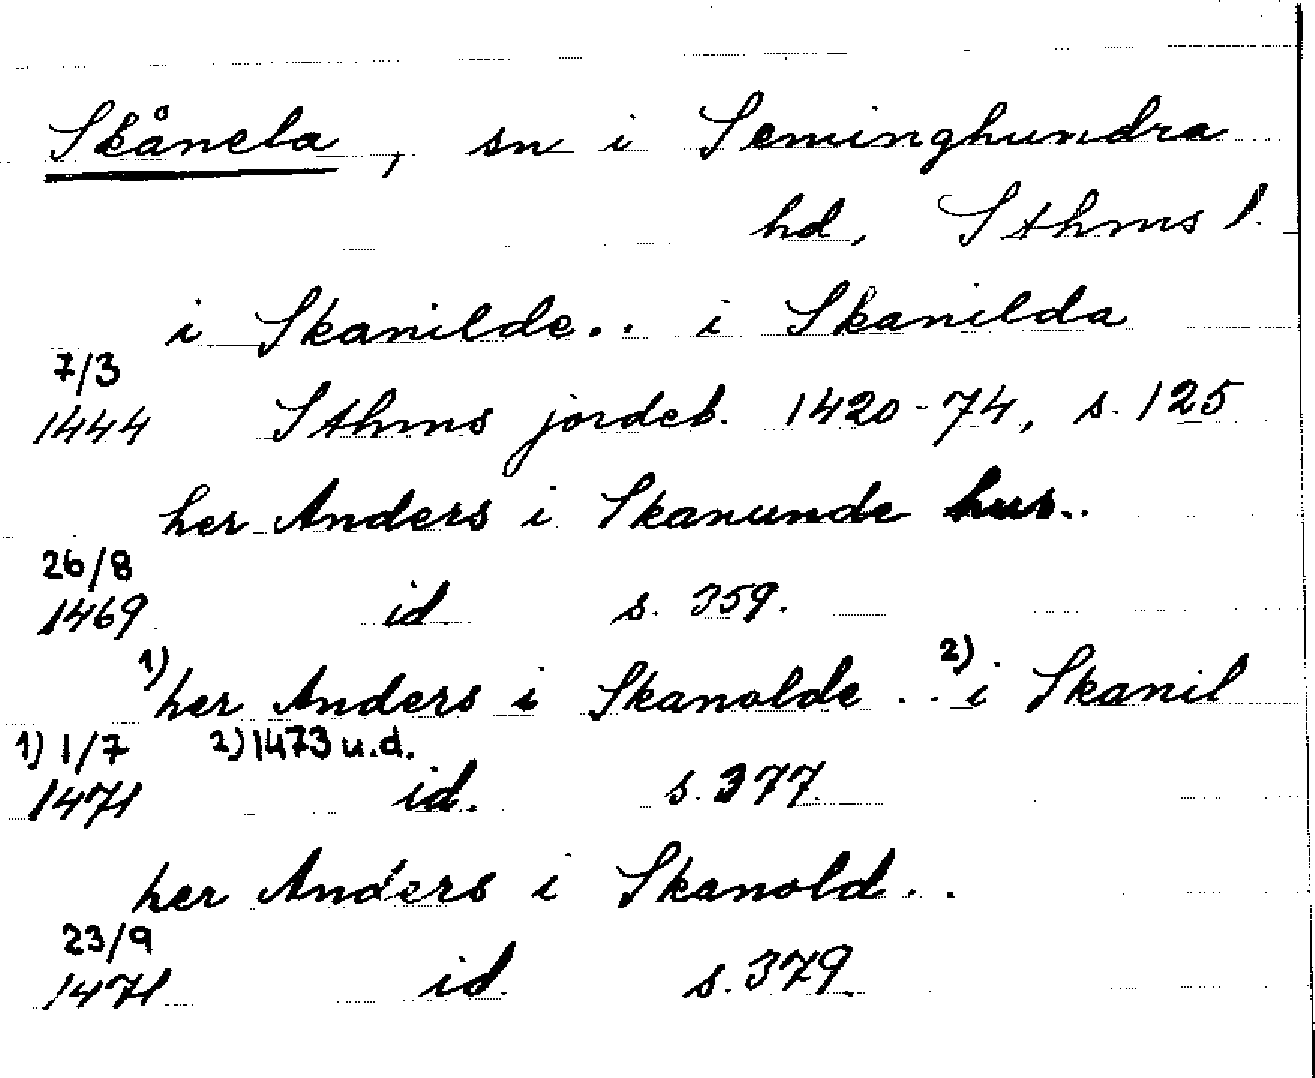 Skånela, sn i Seminghundra
hd, Sthms l.
i Skanilde.. i Skanilda
7/3
1444 Sthms jordeb. 1420-74, s. 125
her Anders i Skanunde hus..
26/8
1469 id s. 359.
1) her Anders i Skanolde .. 2) i Skanil
1) 1/7 2) 1473 u.d.
1471 id. s. 377.
her Anders i Skanold..
23/9
1471 id. s. 379.